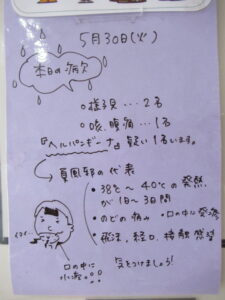 5月30日(火)
本日の病欠
○様子見…2名
○咳、腹痛…1名
『ヘルパンギーナ』疑い1名います。
夏風邪の代表
・38℃～40℃の発熱
が1日～3日間
・のどの痛み ・口の中に発疹
・飛沫、経口、接触感染
口の中に
気をつけましょう!